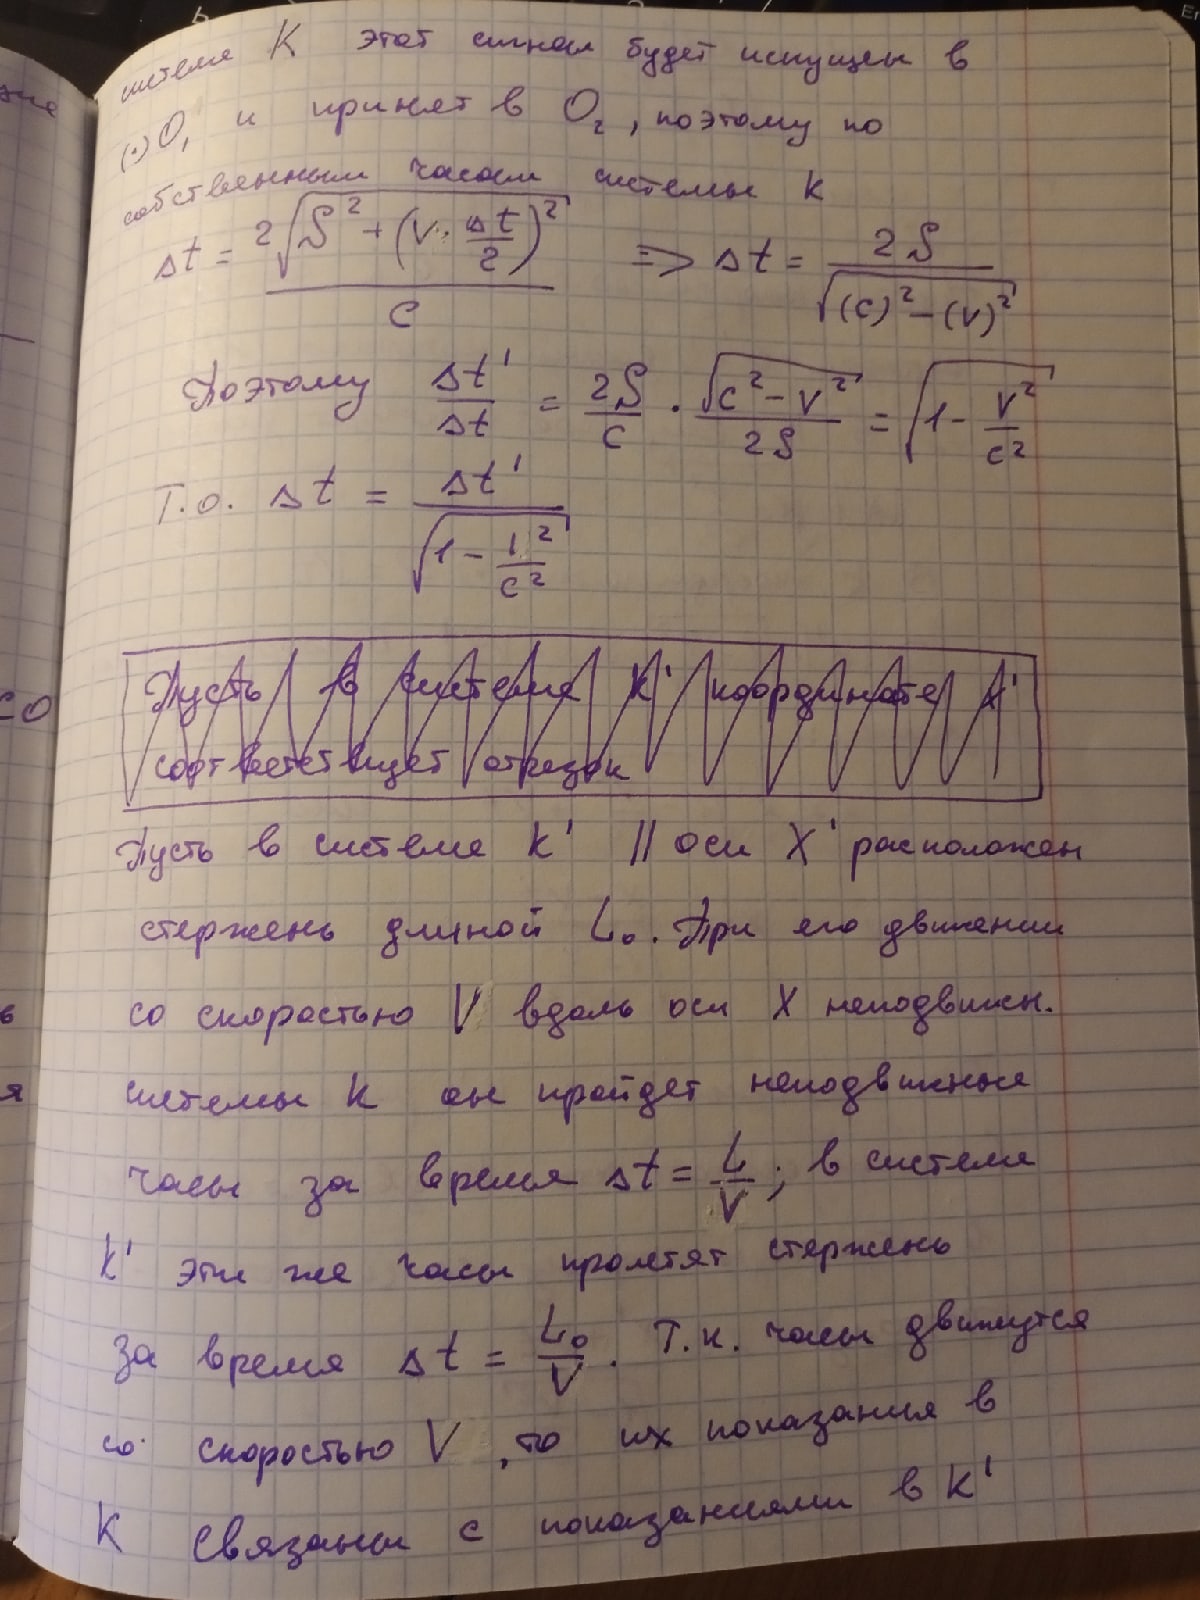 системе K этот сигнал будет испущен в
(·) O₁ и принят в O₂, поэтому по
собственным часам системы K
Δt = 2√(S² + (V · Δt/2)²) / c ⇒ Δt = 2S / √((c)² − (V)²)
Поэтому Δt'/Δt = 2S/c · √(c² − V²)/2S = √(1 − V²/c²)
Т.о. Δt = Δt' / √(1 − V²/c²)
Пусть в системе K' координате X'
соответствует отрезок
Пусть в системе K' || оси X' расположен
стержень длиной L₀. При его движении
со скоростью V вдоль оси X неподвижн.
системы K он пройдет неподвижные
часы за время Δt = L/V; в системе
K' эти же часы пролетят стержень
за время Δt = L₀/V. Т.к. часы движутся
со скоростью V, то их показания в
K связаны с показаниями в K'